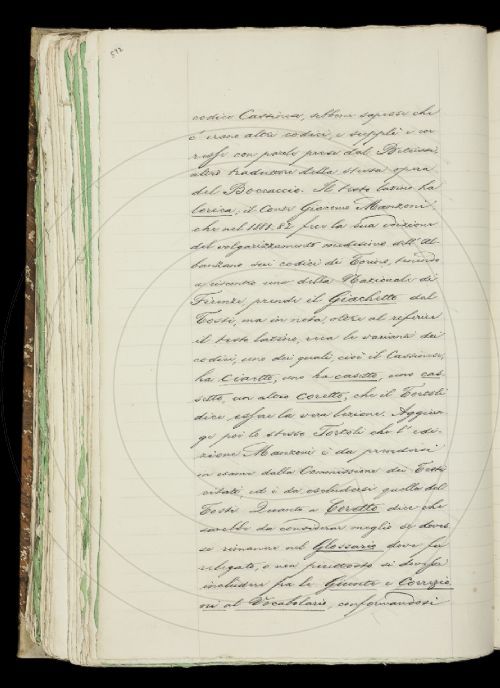 572
codice Cassinese, sebbene sapesse che
c'erano altri codici, e supplì e cor
resse con parole prese dal Betussi,
altro traduttore della stessa opera
del Boccaccio. Il testo latino ha
lorica; il Conte Giacomo Manzoni
che nel 1881-82 fece la sua edizione
del volgarizzamento medesimo dell'Al
banzani sui codici di Torino, tenendo
a riscontro uno della Nazionale di
Firenze prende il Giachetto dal
Tosti, ma in nota, oltre al riferire
il testo latino, reca le varianti dei
codici, uno dei quali, cioè il Cassinese,
ha Ciartto, uno ha casetto, uno cas-
setto, un altro Coretto, che il Tortoli
dice esser la vera lezione. Aggiun
ge poi lo stesso Tortoli che l'edi-
zione Manzoni è da prendersi
in esame dalla Commissione dei Testi
citati, ed è da escludersi quella del
Tosti. Quanto a Corotto dice che
sarebbe da considerar meglio se doves
se rimanere nel Glossario dove fu
relegato, o non piuttosto si dovesse
includere fra le Giunte e Correzio
ni al Vocabolario, conformandosi